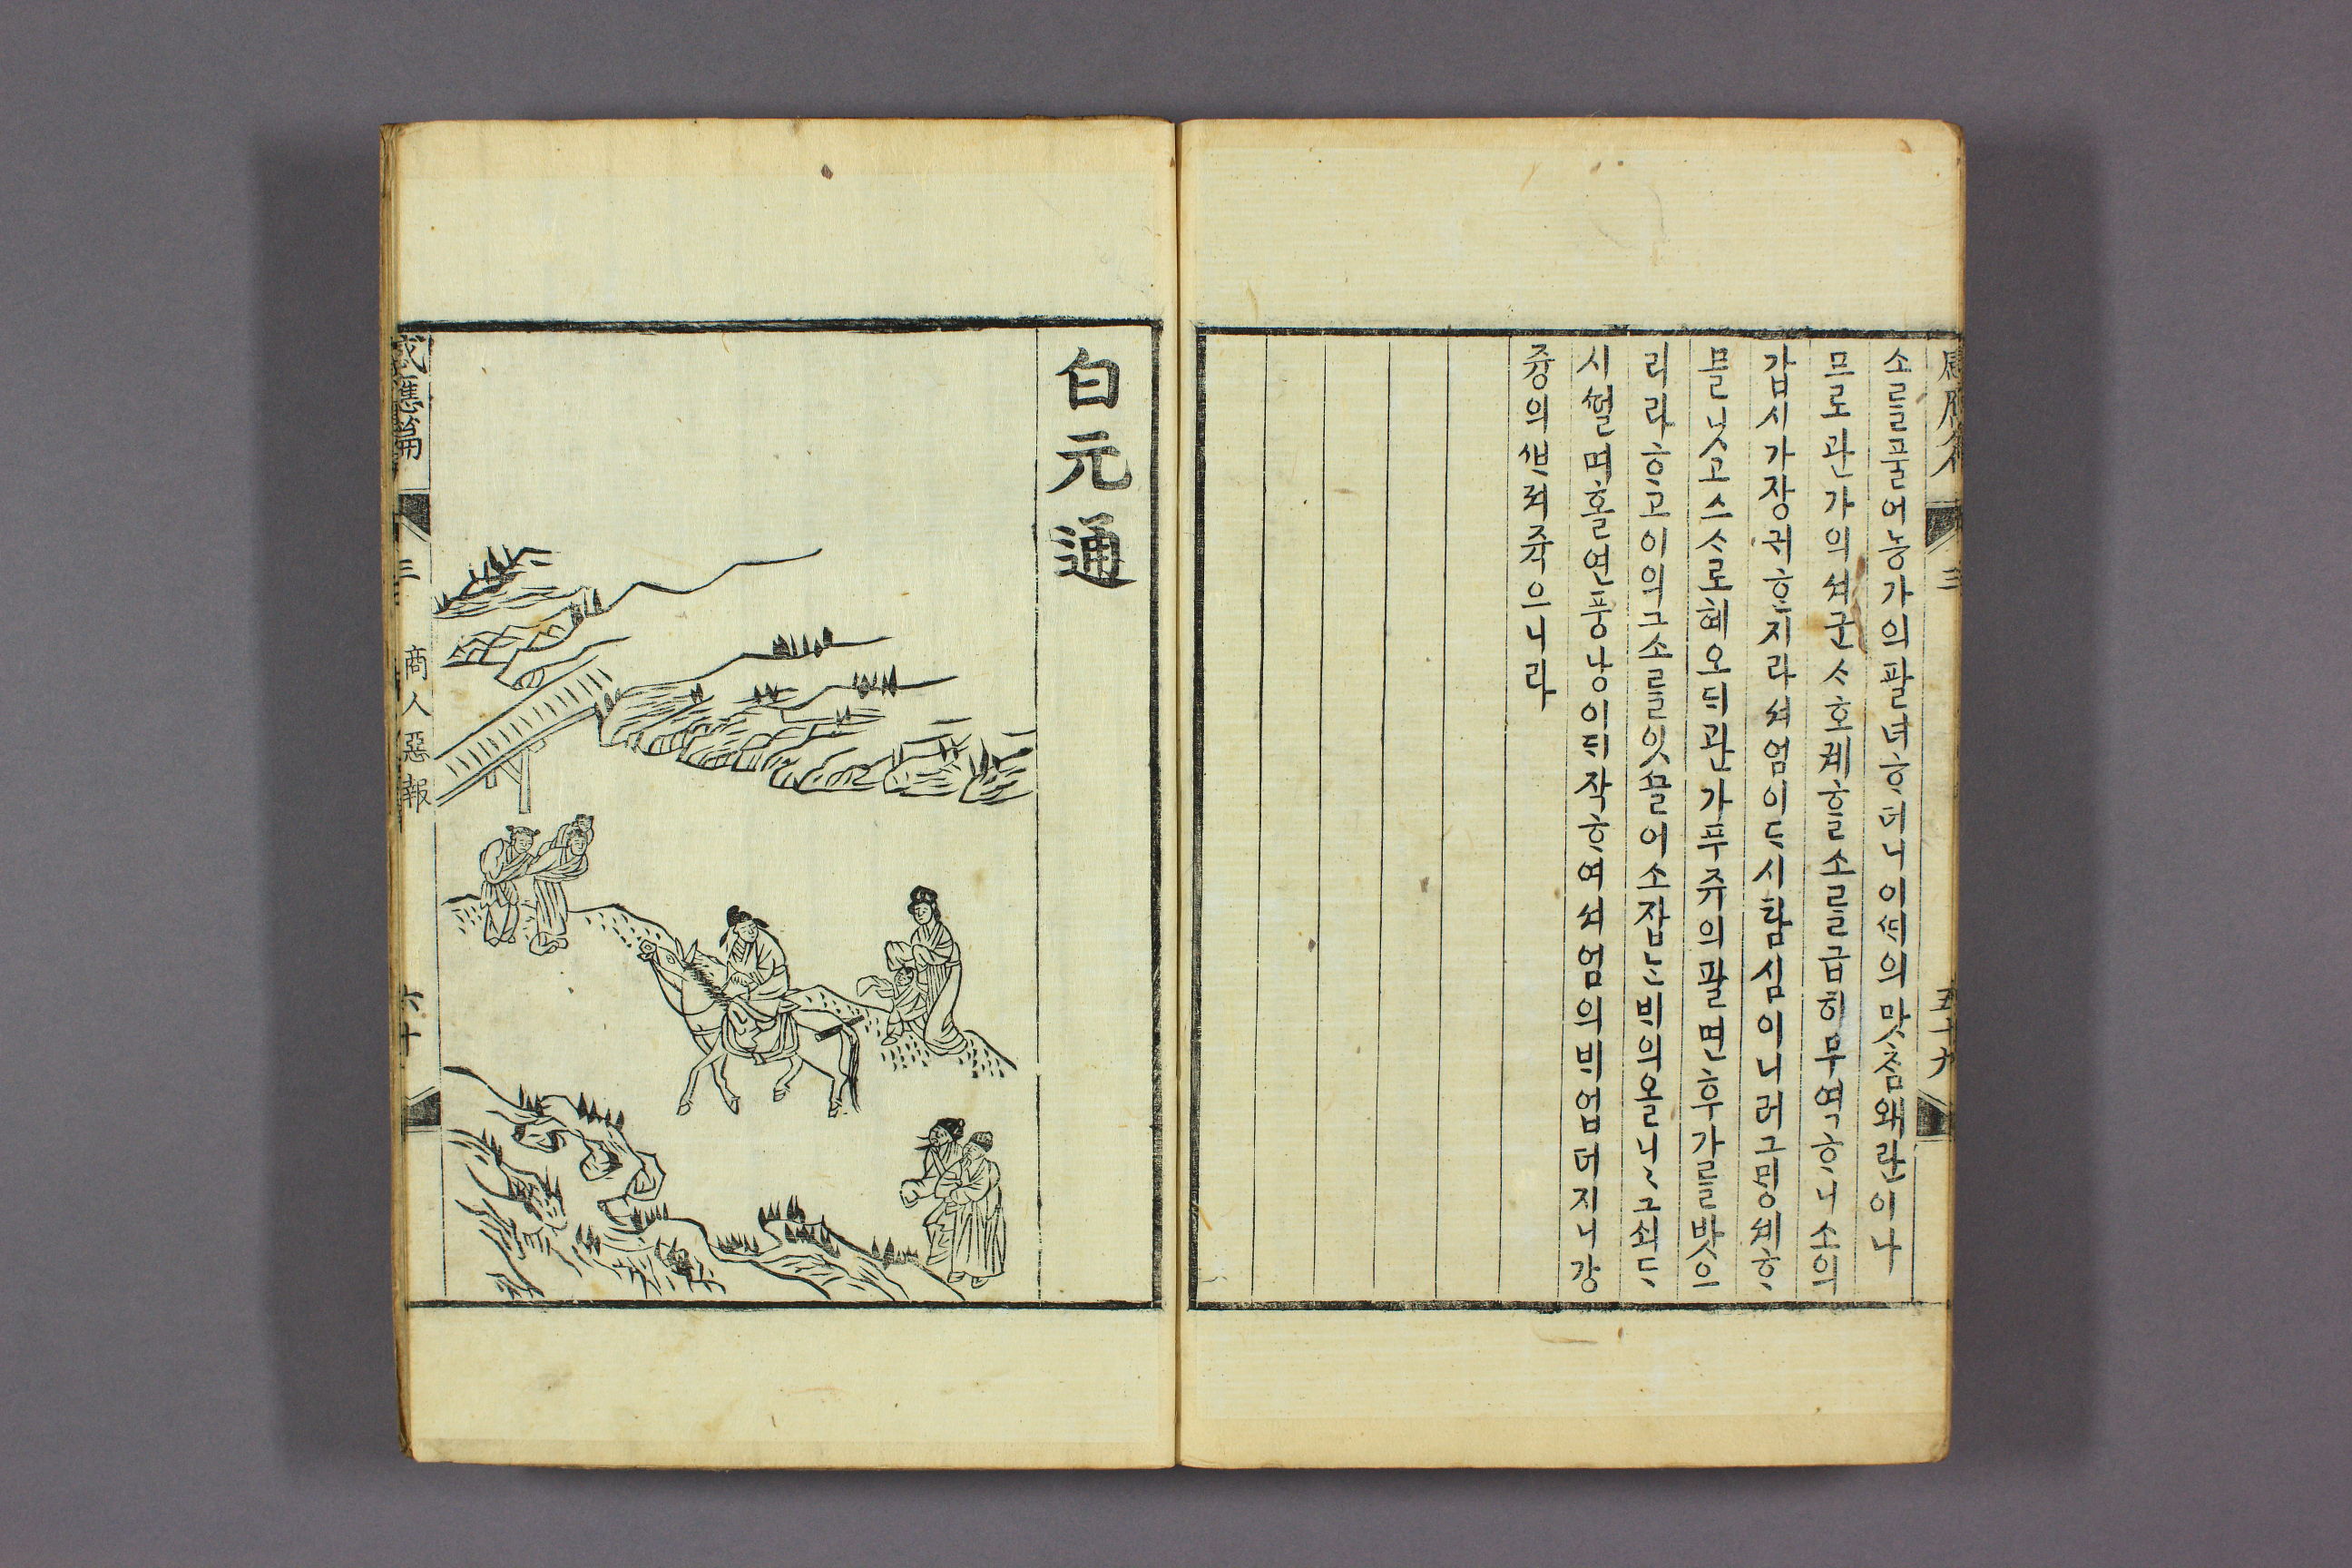 三 五十九
소를물어농가의팔녀ᄒᆞ더니이ᄯᆡ의맛ᄎᆞᆷ왜란이나
므로관가의셔군ᄉᆞ호궤ᄒᆞᆯ소를금히무역ᄒᆞ니소의
갑시가장귀ᄒᆞᆫ지라셔엄이ᄃᆞ시탐심이니러그ᄆᆡᆼ셰ᄒᆞ
믈닛고스ᄉᆞ로혜오ᄃᆡ관가푸쥬의팔면후가를밧으
리라ᄒᆞ고이의그소를잇ᄭᅳᆯ어소잡ᄂᆞᆫᄇᆡ의올니〻그쇠ᄃᆞ
시ᄯᅥᆯ며홀연풍낭이ᄃᆡ작ᄒᆞ여셔엄의ᄇᆡ업더지니강
즁의ᄲᅡ져죽으니라
白元通
感應篇 三 商人惡報 六十